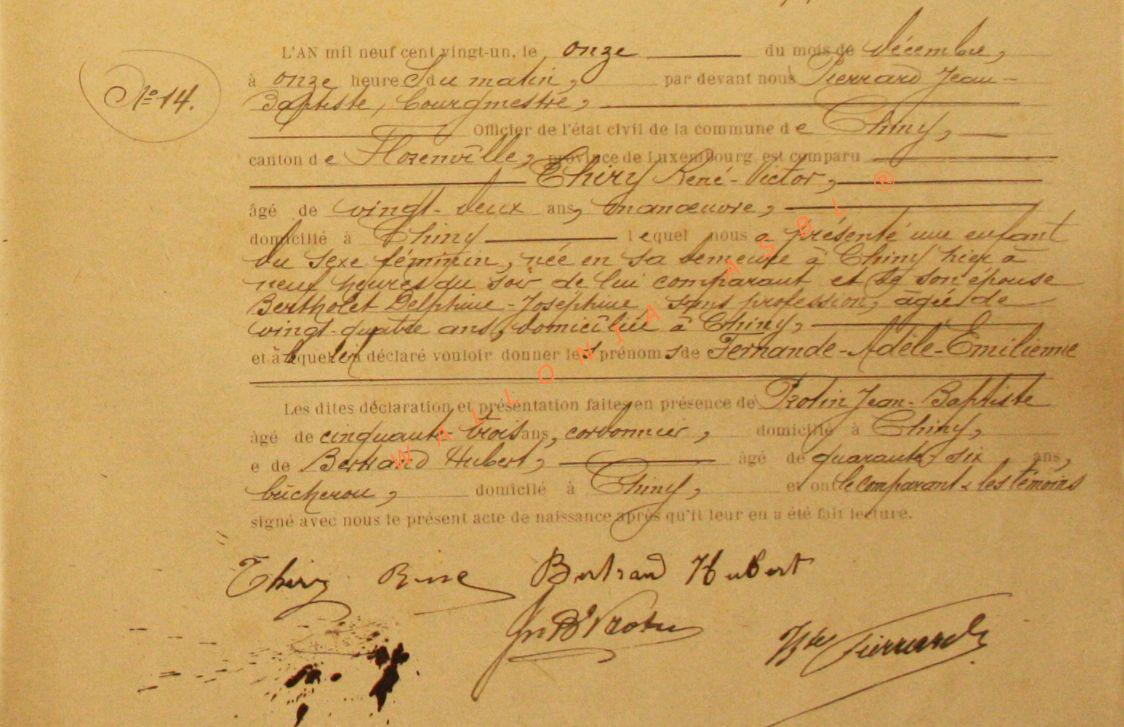 L'AN mil neuf cent vingt-un, le onze du mois de décembre,
N° 14.
à onze heures du matin, par devant nous Pierrard Jean-
Baptiste, bourgmestre,
Officier de l'état civil de la commune de Chiny,
canton de Florenville, province de Luxembourg est comparu
Thiry René-Victor,
âgé de vingt-deux ans, manœuvre,
domicilié à Chiny lequel nous a présenté une enfant
du sexe féminin, née en sa demeure à Chiny hier à
neuf heures du soir de lui comparant et de son épouse
Bertholet Delphine-Joséphine sans profession, âgée de
vingt-quatre ans, domiciliée à Chiny,
et à laquelle il a déclaré vouloir donner les prénoms de Fernande-Adèle-Emilienne
Les dites déclaration et présentation faites en présence de Protin Jean-Baptiste
âgé de cinquante-trois ans, cordonnier, domicilié à Chiny,
e de Bertrand Hubert, âgé de quarante six ans,
bûcheron, domicilié à Chiny, et ont le comparant & les témoins
signé avec nous le présent acte de naissance après qu'il leur en a été fait lecture.
Thiry René Bertrand Hubert
Jn Bte Protin
Bte Pierrard
WALLONIA ASBL ©